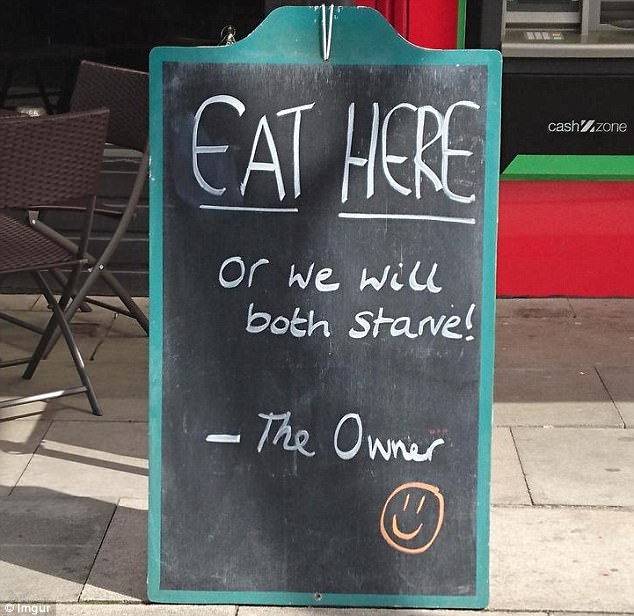 EAT HERE
Or we will
both starve!
- The Owner
cashzone
© Imgur